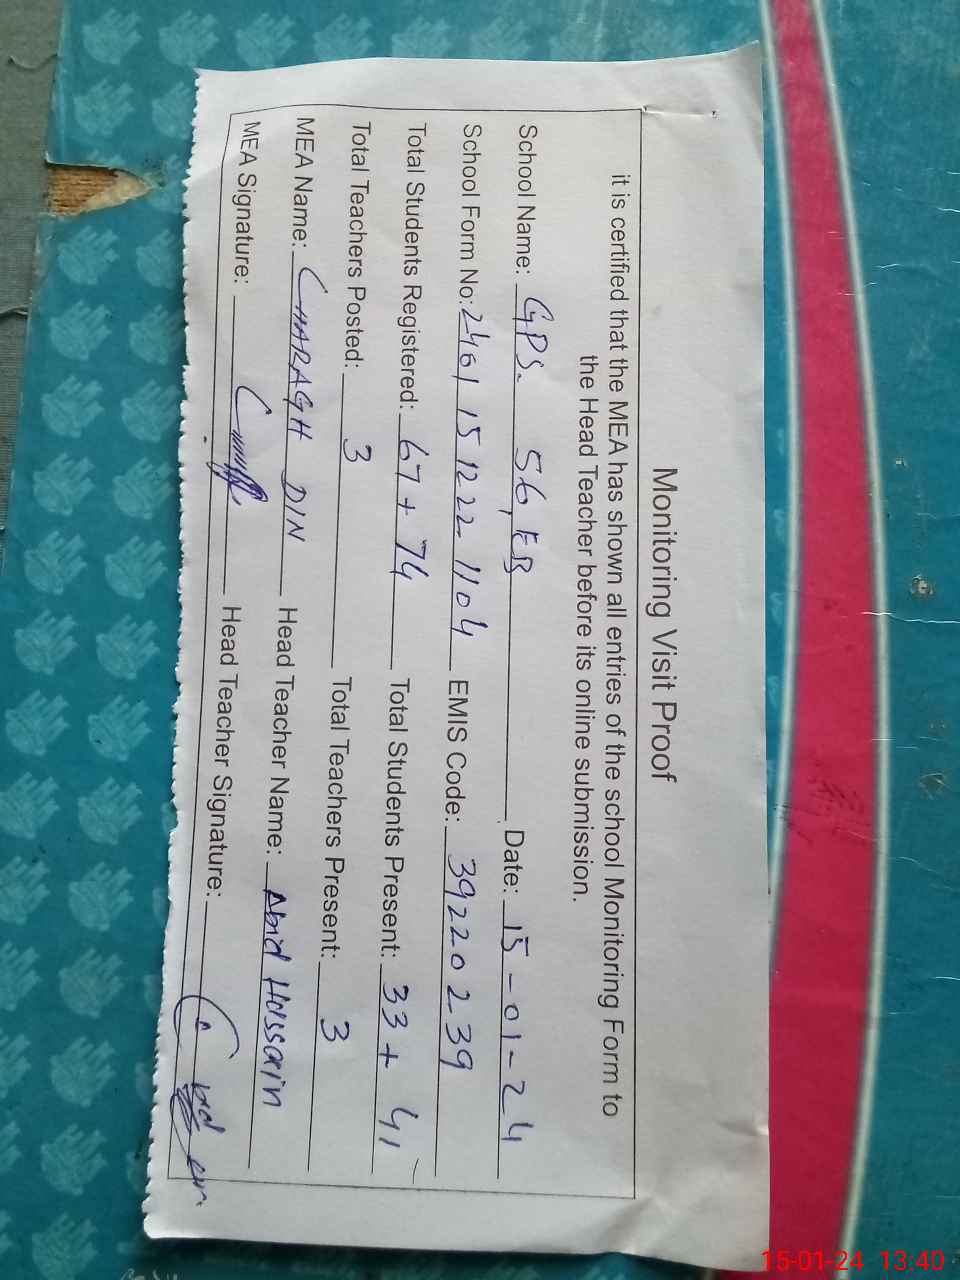 Monitoring Visit Proof
it is certified that the MEA has shown all entries of the school Monitoring Form to
the Head Teacher before its online submission.
School Name: GPS. 56, EB Date: 15-01-24
School Form No: 2401 15 1222 1104 EMIS Code: 39220239
Total Students Registered: 67 + 74 Total Students Present: 33 + 41
Total Teachers Posted: 3 Total Teachers Present: 3
MEA Name: CHARAGH DIN Head Teacher Name: Abid Hussain
MEA Signature: Head Teacher Signature:
15-01-24 13:40